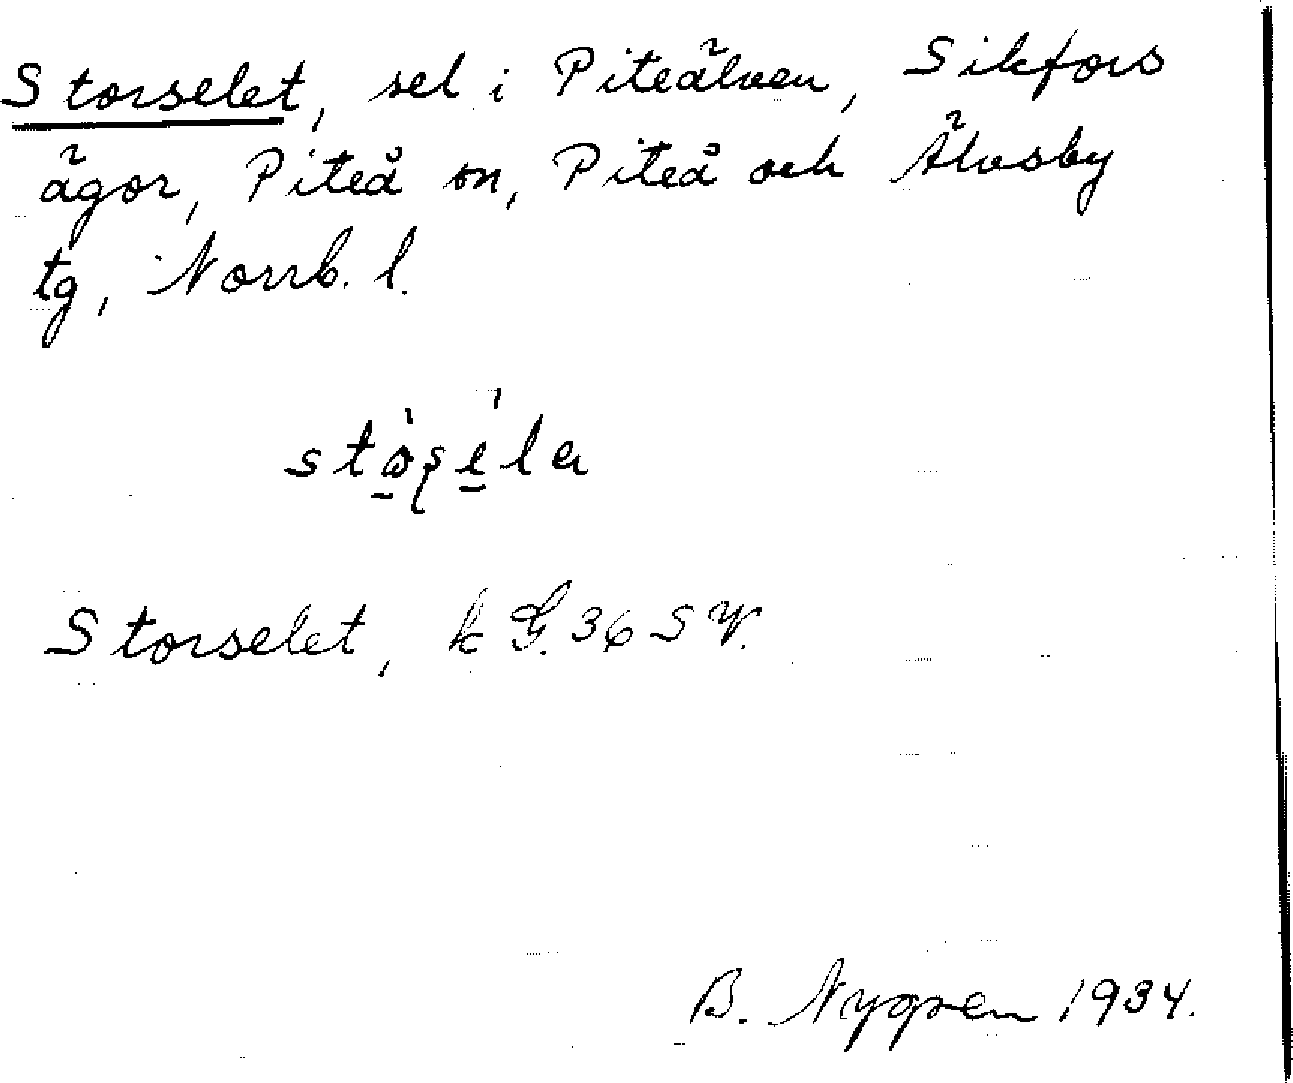 Storselet, sel i Piteälven, Sikfors
ägor, Piteå sn, Piteå och Älvsby
tg, Norrb. l.
Storselet, k G. 36 S V.
B. Nygren 1934.